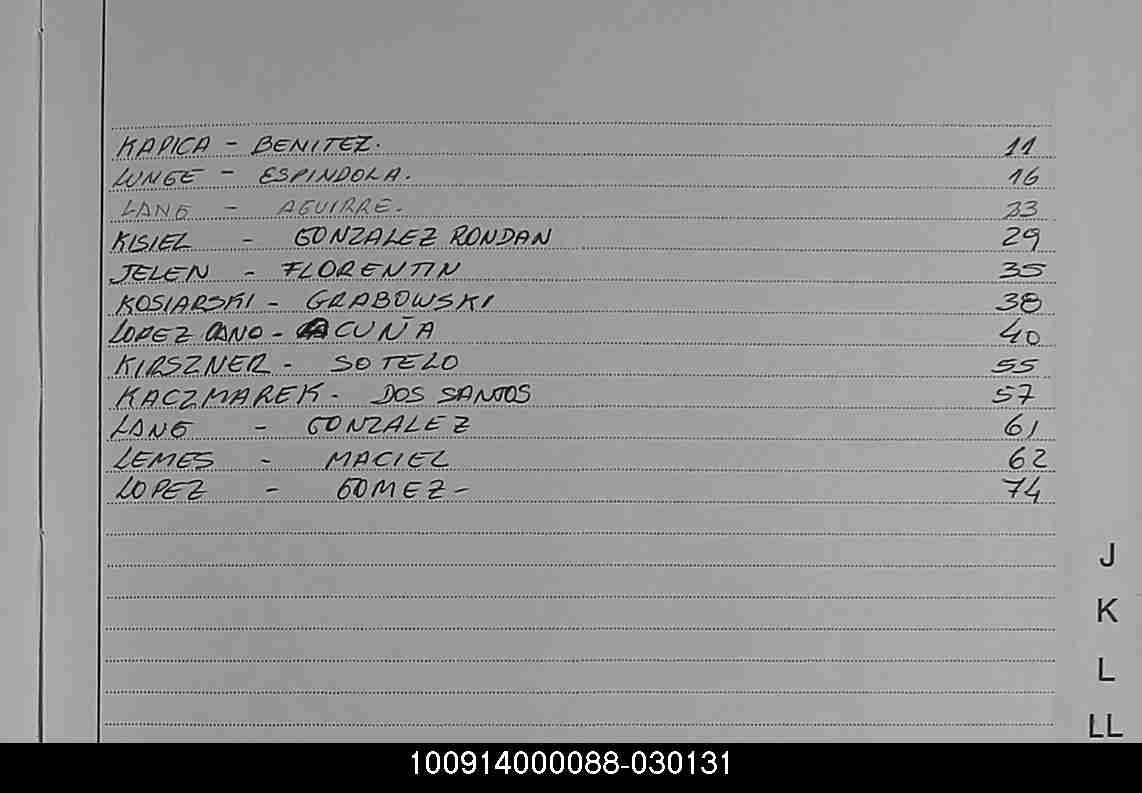 KAPICA - BENITEZ. 11
LUNGE - ESPINDOLA. 16
LANG - AGUIRRE. 23
KISIEL - GONZALEZ RONDAN 29
JELEN - FLORENTIN 35
KOSIARSKI - GRABOWSKI 38
LOPEZ CANO - ACUÑA 40
KIRSZNER - SOTELO 55
KACZMAREK - DOS SANTOS 57
LANG - GONZALEZ 61
LEMES - MACIEL 62
LOPEZ - GOMEZ - 74
J
K
L
LL
100914000088-030131